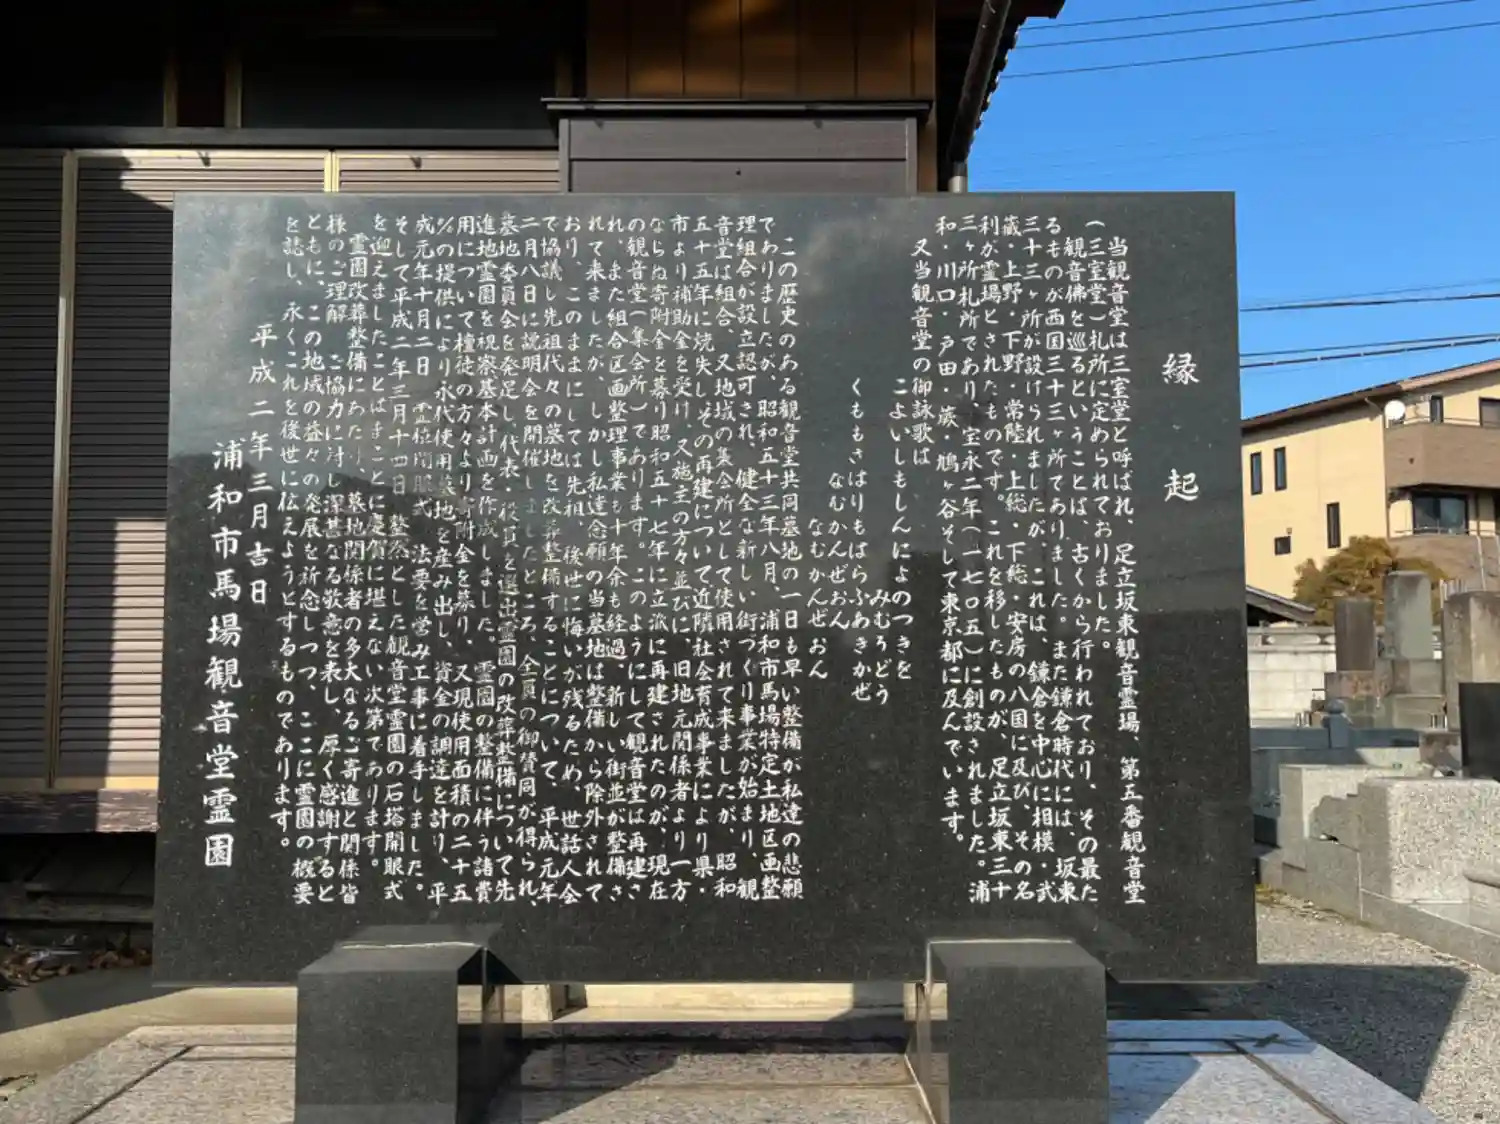 縁起
当観音堂は三室堂と呼ばれ、足立坂東観音霊場、第五番観音堂
(三室堂)札所に定められておりました。
観音佛を巡るということは、古くから行われており、その最た
るものが西国三十三ヶ所でありました。また鎌倉時代には、坂東
三十三ヶ所が設けられましたが、これは、鎌倉を中心に相模・武
蔵・上野・下野・常陸・上総・下総・安房の八国に及び、その名
利が霊場とされたものです。これを移したものが、足立坂東三十
三ヶ所札所であり、宝永二年(一七〇五)に創設されました。浦
和・川口・戸田・蕨・鳩ヶ谷そして東京都に及んでいます。
又当観音堂の御詠歌は
こよいしもしんによのつきを
みむろどう
くももさはりもはらふあきかぜ
なむかんぜおん
なむかんぜおん
この歴史のある観音堂共同墓地の一日も早い整備が私達の悲願
でありましたが、昭和五十三年八月、浦和市馬場特定土地区画整
理組合が設立認可され、健全な新しい街づくり事業が始まり、観
音堂は組合、又地域の集会所として使用されて来ましたが、昭和
五十五年に焼失し、その再建について近隣社会育成事業により県・
市より補助金を受け、又施主の方々並びに、旧地元関係者より一方
ならぬ寄附金を募り昭和五十七年に立派に再建されたのが、現在
の観音堂(集会所)であります。このようにして観音堂は再建さ
れ、また組合区画整理事業も十年余も経過、新しい街並が整備さ
れて来ましたが、しかし私達念願の当墓地は整備から除外されて
おり、このままにしては先祖、後世に悔いが残るため、世話人会
で協議し先祖代々の墓地を改葬整備することについて、平成元年
二月八日に説明会を開催しましたところ、全員の御賛同が得られ、
墓地委員会を発足し、代表・役員を選出霊園の改葬整備について先
進地霊園を視察基本計画を作成しました。霊園の整備に伴う諸費
用について檀徒の方々より寄附金を募り、又現使用面積の二十五
%の提供により永代使用墓地を産み出し、資金の調達を計り、平
成元年十月二日 霊位閉眼式 法要を営み工事に着手しました。
そして平成二年三月十四日 整然とした観音堂霊園の石塔開眼式
を迎えましたことはまことに慶賀に堪えない次第であります。
霊園改葬整備にあたり、墓地関係者の多大なるご寄進と関係皆
様のご理解 ご協力に対し深甚なる敬意を表し、厚く感謝すると
ともに、この地域の益々の発展を祈念しつつ、ここに霊園の概要
を誌し、永くこれを後世に伝えようとするものであります。
平成二年三月吉日
浦和市馬場観音堂霊園